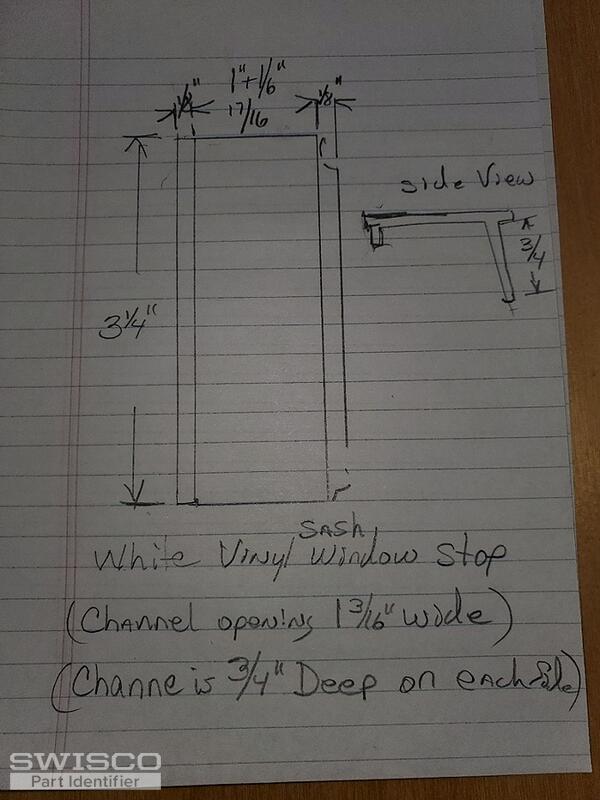 1/8" 1" + 1/6" 1/8"
17/16
side View
3/4
3 1/4"
SASH
White Vinyl Window Stop
(Channel opening 1 3/16" wide)
(Channe is 3/4" Deep on each Side)
SWISCO
Part Identifier